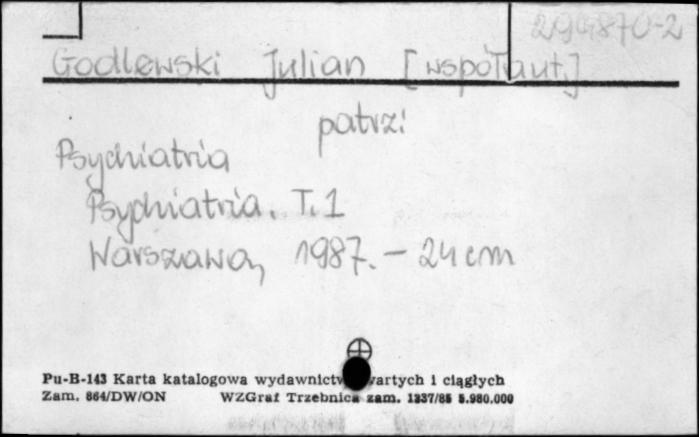 294870-2
Godlewski Julian [współaut.]
patrz:
Psychiatria
Psychiatria. T. 1
Warszawa, 1987. — 24 cm
Pu-B-143 Karta katalogowa wydawnictw zwartych i ciągłych
Zam. 864/DW/ON WZGraf Trzebnica zam. 1337/85 5.980.000